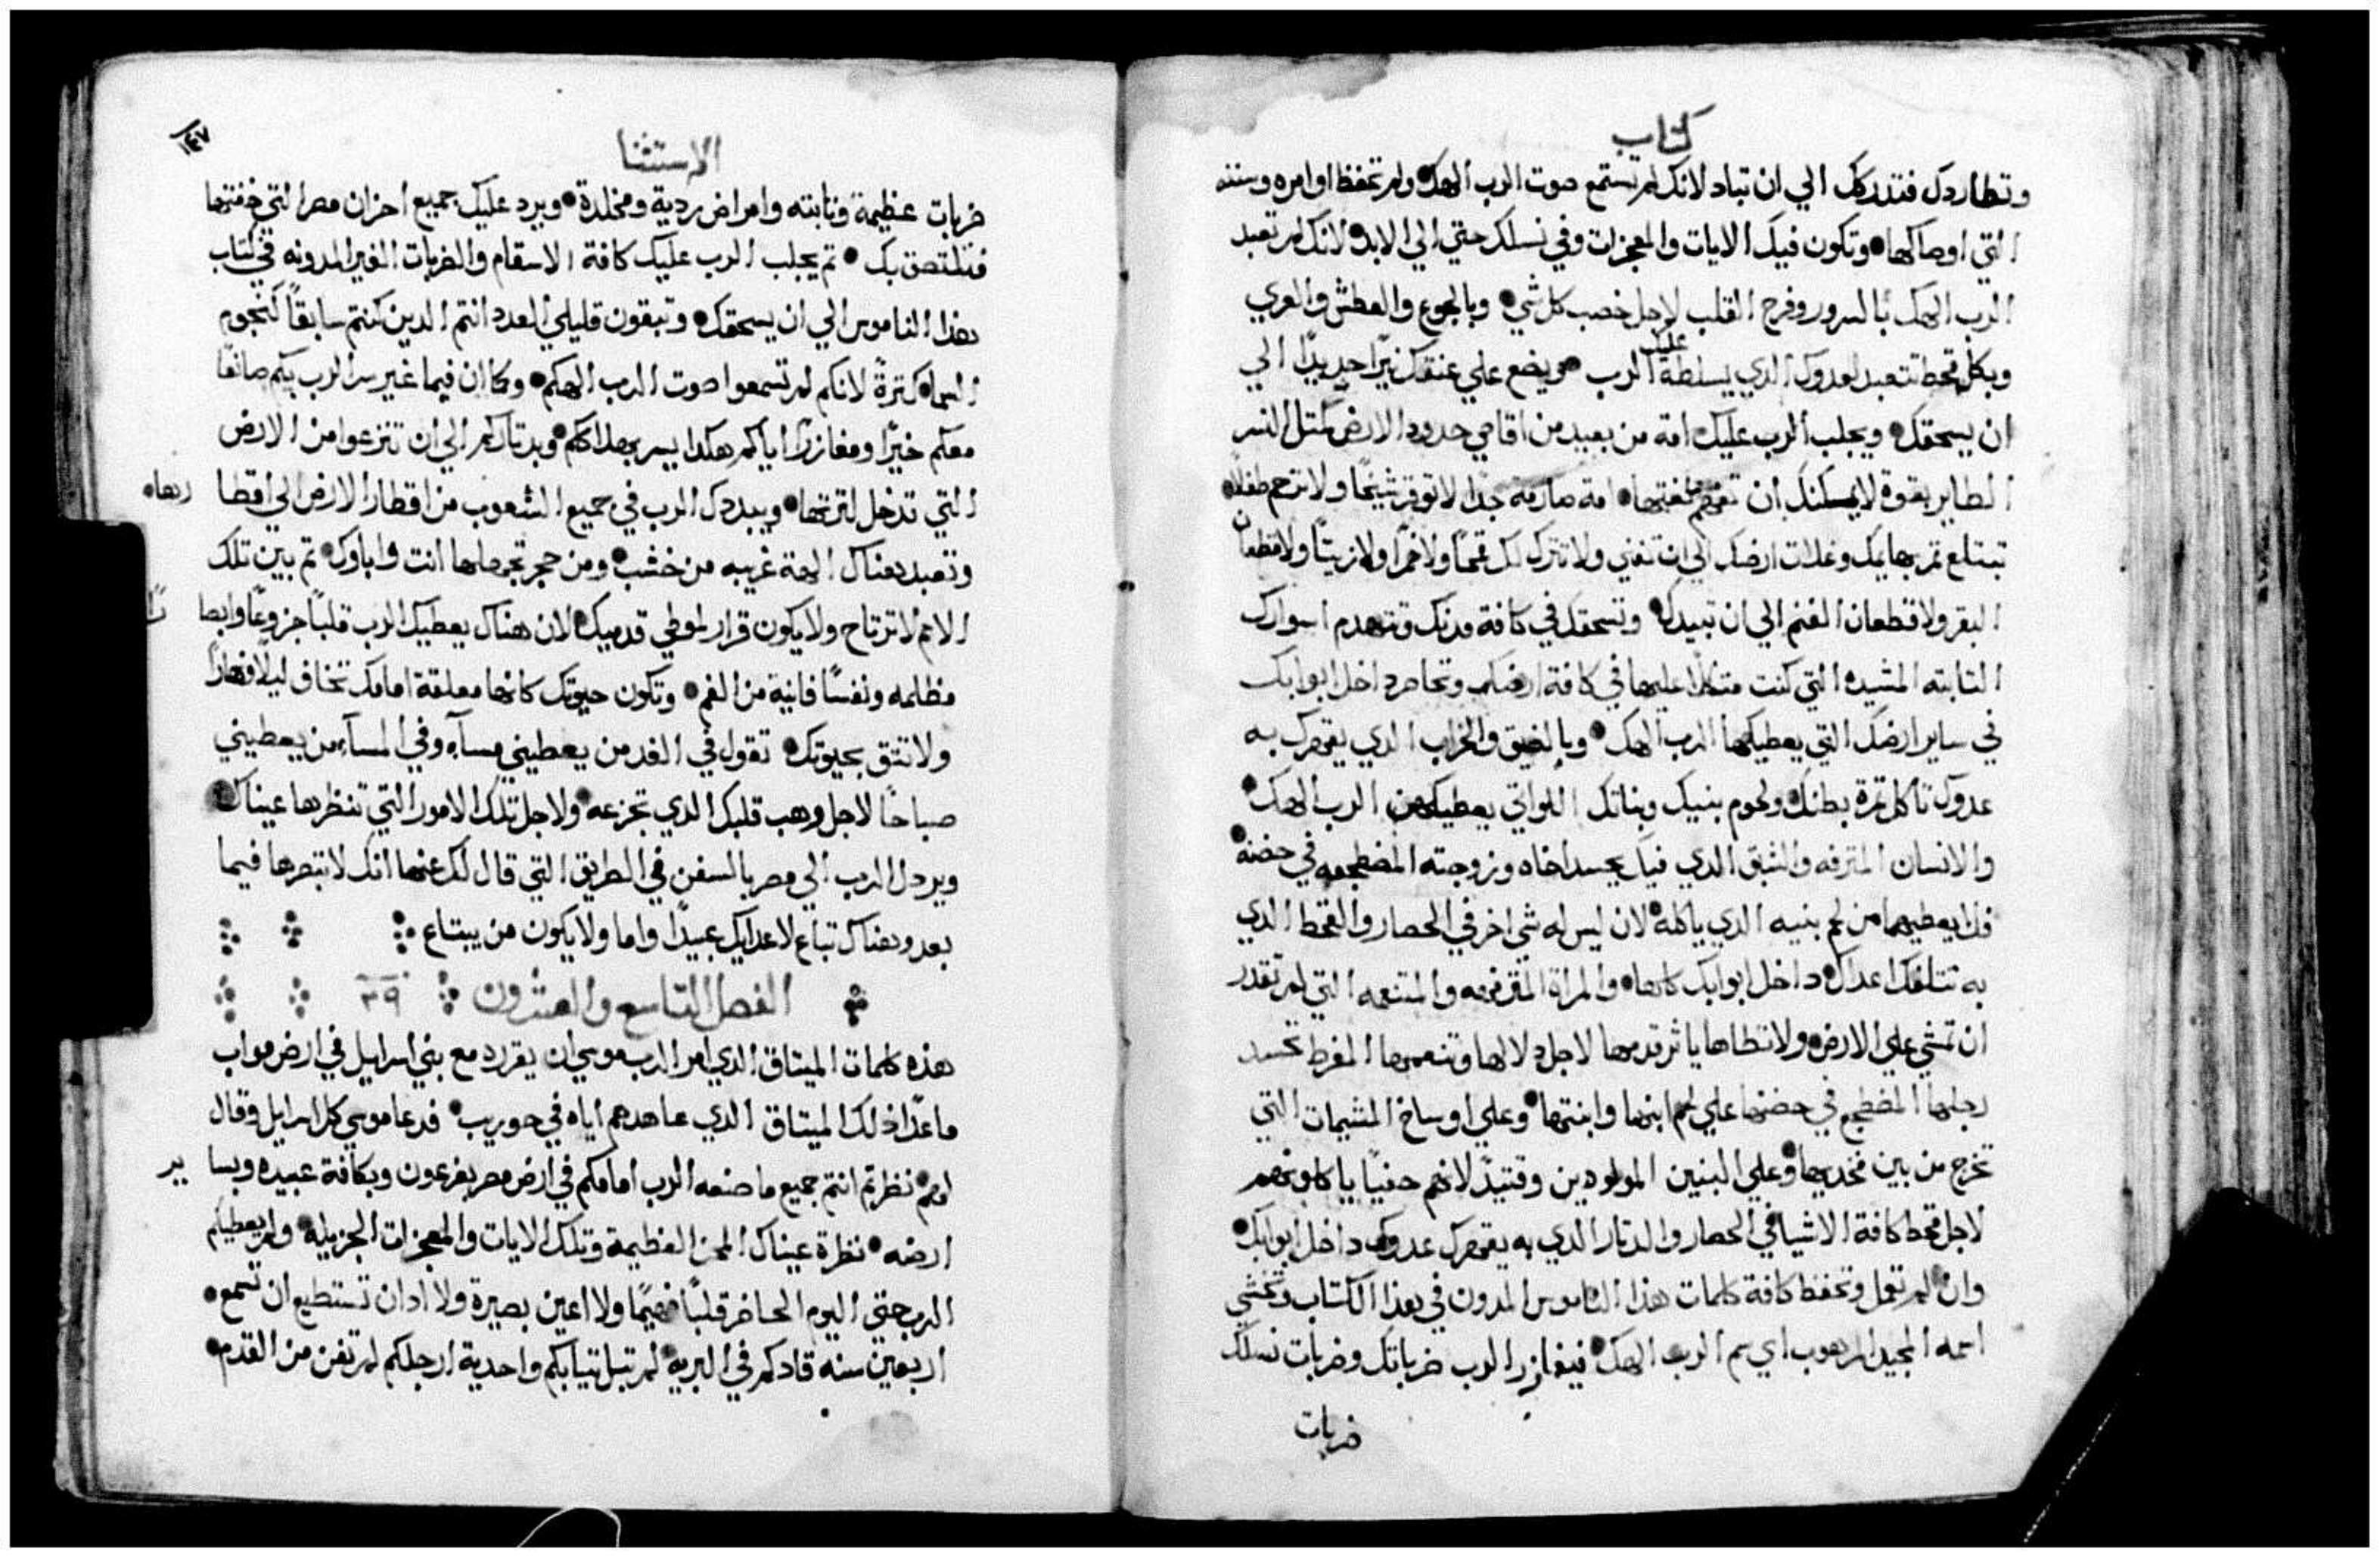 كتاب
وتطاردك فتدركك الي ان تباد لانك لم تستمع صوت الرب الهك ولم تحفظ اوامره وسننه
التي اوصاكها وتكون فيك الايات والمعجزات وفي نسلك حتي الي الابد لانك لم تعبد
الرب الهك بالسرور وفرح القلب لاجل خصب كل شي وبالجوع والعطش والعري
وبكل قحط تتعبد لعدوك الدي يسلطه عليك الرب ويضع علي عنقك نيرًا حديدًا الي
ان يسحقك ويجلب الرب عليك امة من بعيد من اقاصي حدود الارض كمتل النسر
الطاير بقوة لا يمكنك ان تفهم لغتها امة صارمة جدًا لا توقر شيخًا ولا ترحم طفلًا
تبتلع تمر بهايمك وغلات ارضك الي ان تفني ولا تترك لك قمحًا ولا خمرًا ولا زيتًا ولا قطعان
البقر ولا قطعان الغنم الي ان تبيدك وتسحقك في كافة مدنك وتتهدم اسوارك
التابته المشيده التي كنت متكلا عليها في كافة ارضك وتحاصر داخل ابوابك
في ساير ارضك التي يعطيكها الرب الهك وبالضيق والخراب الدي يقهرك به
عدوك تاكل تمرة بطنك ولحوم بنيك وبناتك اللواتي يعطيكهن الرب الهك
والانسان المترفه والشبق الدي فيك يحسد اخاه وزوجته المضطجعه في حضنه
فلا يعطيهما من لحم بنيه الدي ياكله لان ليس له شي اخر في الحصار والقحط الدي
به تتلفك اعداك داخل ابوابك كلها والمراة المترفهه والمتنعمه التي لم تقدر
ان تمشي علي الارض ولا تطاها باثر قدمها لاجل دلالها وتنعمها المفرط تحسد
رجلها المضطجع في حضنها علي لحم ابنها وابنتها وعلي اوساخ المشيمات التي
تخرج من بين فخديها وعلي البنين المولودين وقتيدٍ لانهم خفيًا ياكلونهم
لاجل قحط كافة الاشيا في الحصار والدتار الدي به يقهرك عدوك داخل ابوابك
وان لم تعمل وتحفظ كافة كلمات هذا الناموس المدون في هذا الكتاب وتخشي
اسمه المجيد المرهوب اي اسم الرب الهك فيغازر الرب ضرباتك وضربات نسلك
ضربات
١٤٧
الاستثنا
ضربات عظيمة وتابته وامراض ردية ومخلدة ويرد عليك جميع احزان مصر التي خفتها
فتلتصق بك تم يجلب الرب عليك كافة الاسقام والضربات الغير المدونه في كتاب
هذا الناموس الي ان يسحقك وتبقون قليلي العدد انتم الدين كنتم سابقًا كنجوم
السما كترةً لانكم لم تسمعوا صوت الرب الهكم وكا ان فيما غبر سر الرب بكم صانعًا
معكم خيرًا ومغازرًا اياكم هكدا يسر بهلاككم وبدتاركم الي ان تنزعوا من الارض
التي تدخل لترتها ويبددك الرب في جميع الشعوب من اقطار الارض الي اقطا رها
وتعبد هناك الهة غريبه من خشب ومن حجر تجهلها انت واباوك تم بين تلك
الامم لا ترتاح ولا يكون قرار لموطي قدميك لان هناك يعطيك الرب قلبًا جزوعًا وابصا رًا
مظلمه ونفسًا فانية من الغم وتكون حيوتك كانها معلقة امامك تخاف ليلًا ونهارًا
ولا تتق بحيوتك تقول في الغد من يعطيني مسآء وفي المسآء من يعطيني
صباحًا لاجل رهب قلبك الدي تجزعه ولاجل تلك الامور التي تنظرها عيناك
ويردك الرب الي مصر بالسفن في الطريق التي قال لك عنها انك لا تبصرها فيما
بعد وهناك تباع لاعدايك عبيدًا واما ولا يكون من يبتاع
الفصل التاسع والعشرون ٢٩
هذه كلمات الميتاق الدي امر الرب موسي ان يقرره مع بني اسرايل في ارض مواب
ماعدا ذلك الميتاق الدي عاهدهم اياه في حوريب فدعا موسي كل اسرايل وقال
لهم نظرتم انتم جميع ما صنعه الرب امامكم في ارض مصر بفرعون وبكافة عبيده وبسا ير
ارضه نظرة عيناك المحن العظيمة وتلك الايات والمعجزات الجزيله ولم يعطيكم
الرب حتي اليوم الحاضر قلبًا فهيمًا ولا اعين بصيرة ولا ادان تستطيع ان تسمع
اربعين سنه قادكم في البريه لم تبل تيابكم واحدية ارجلكم لم تفن من القدم